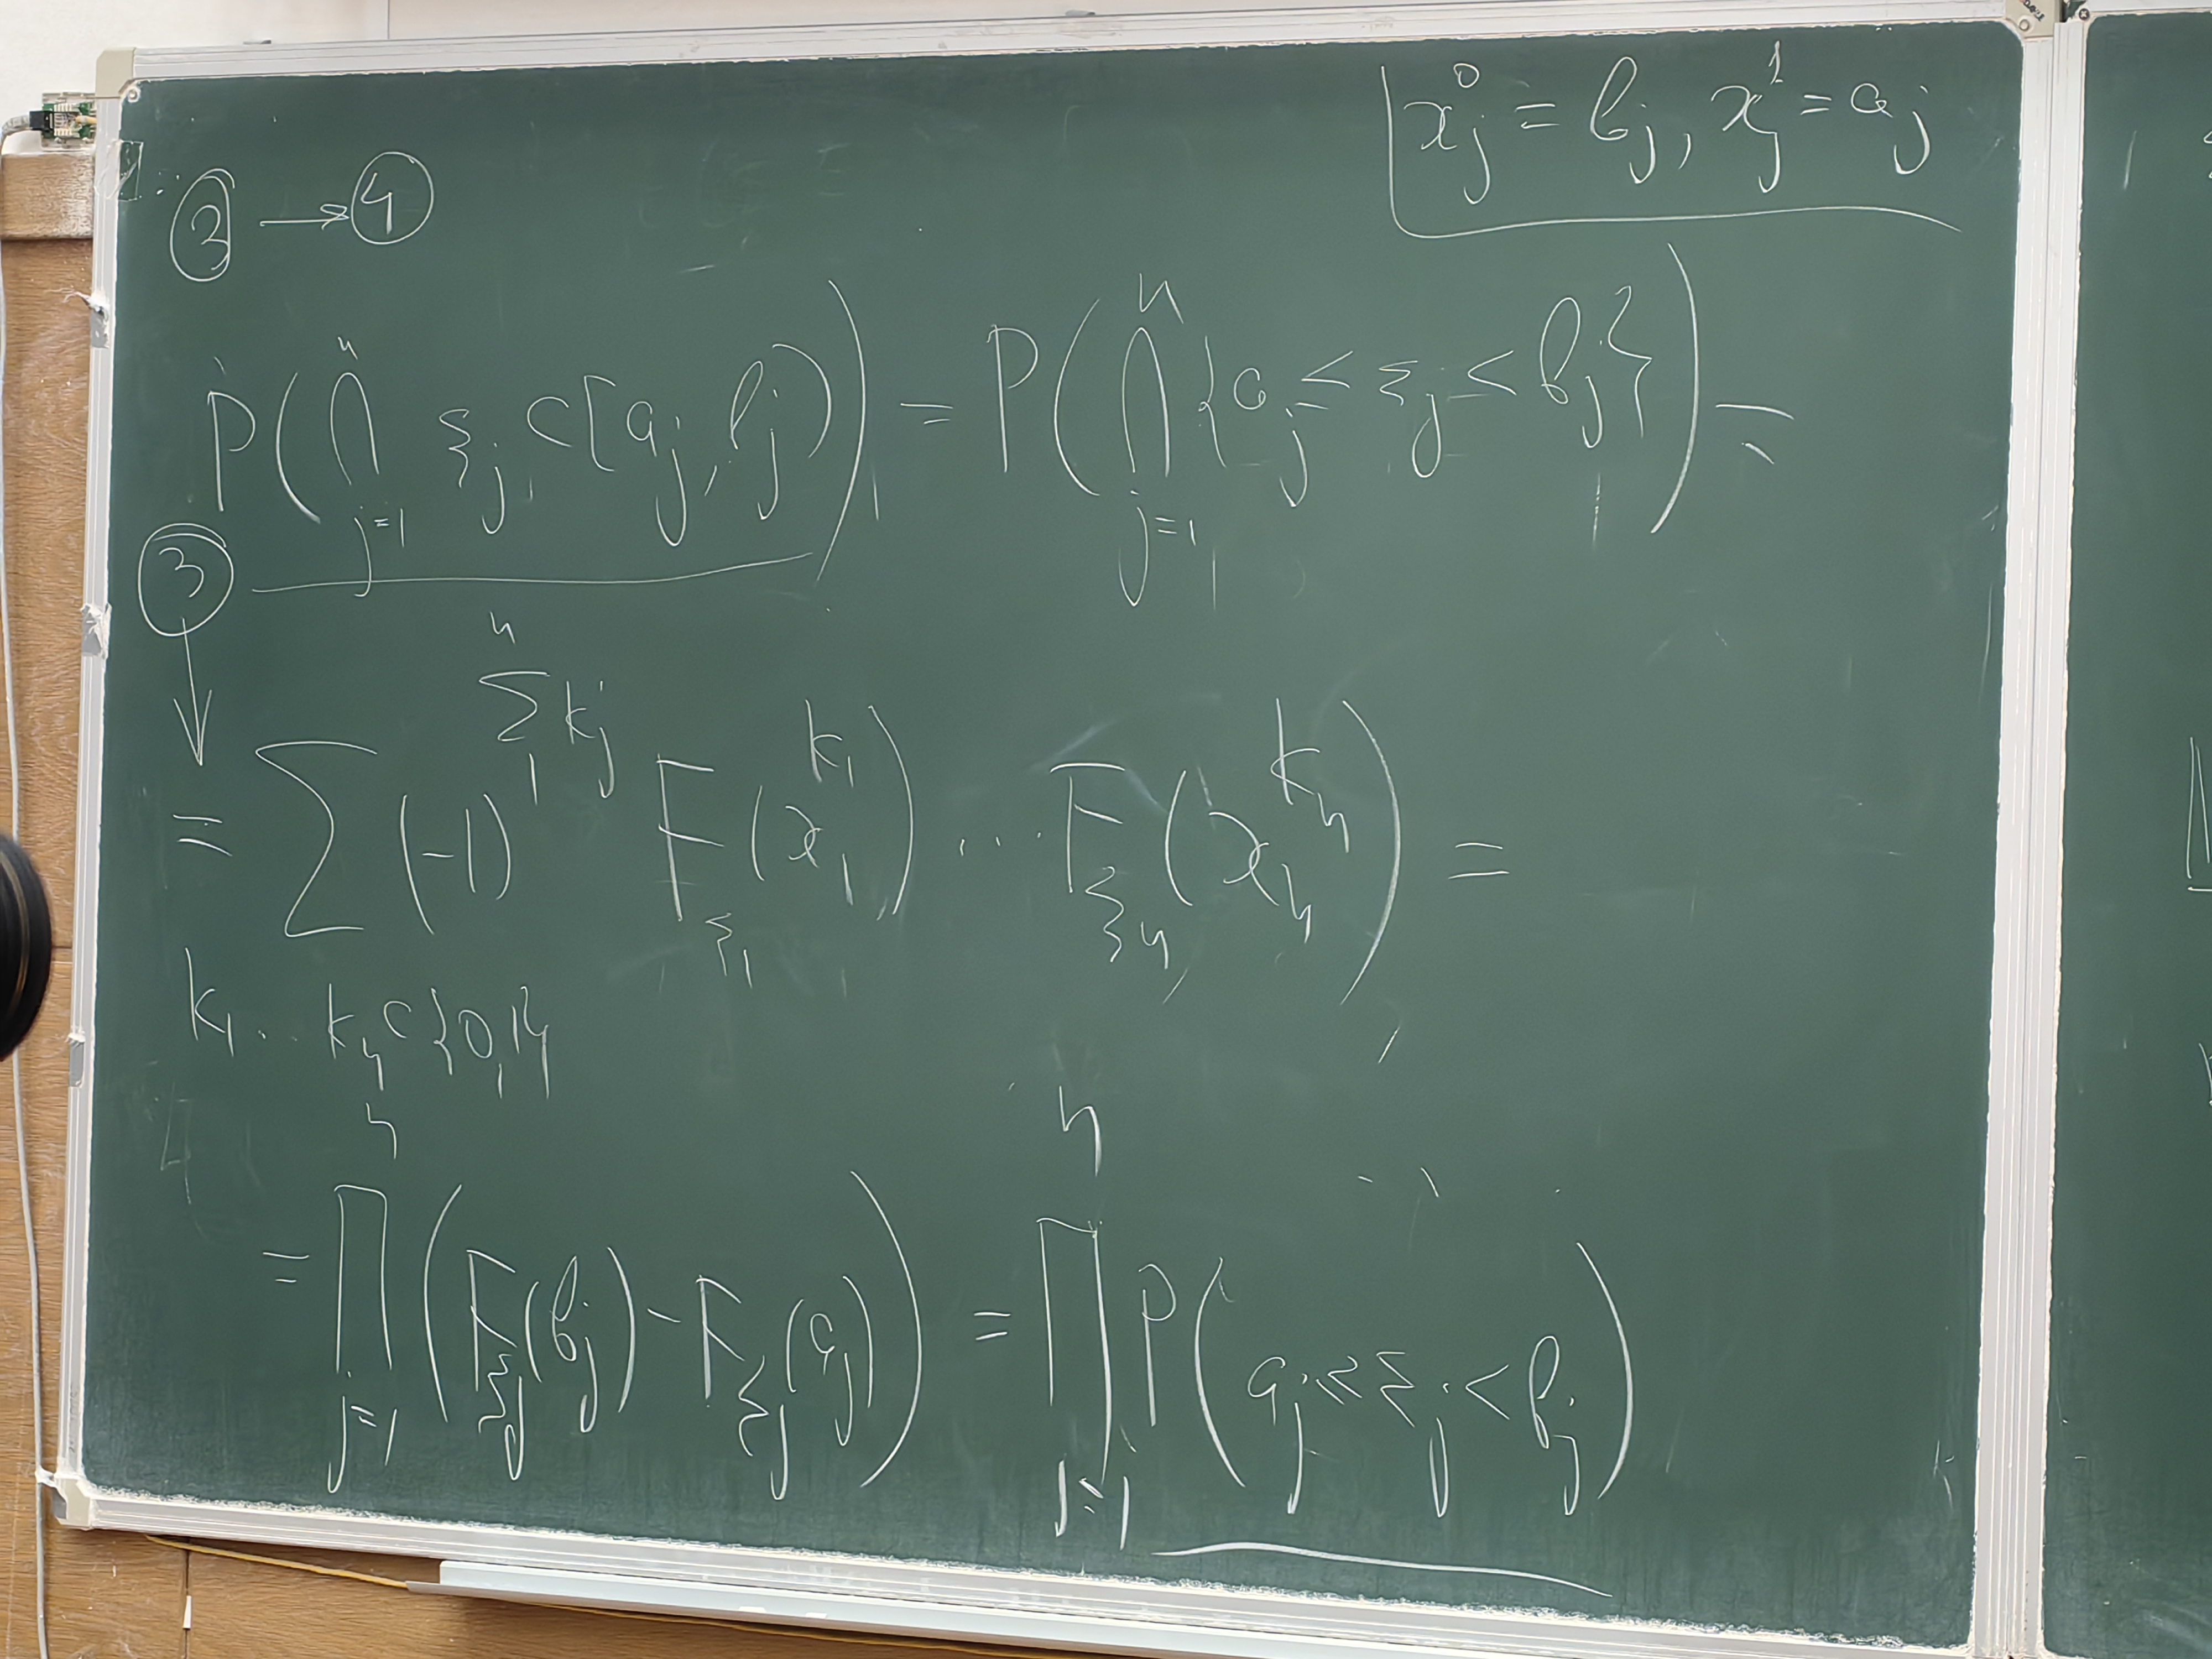 x_j^0 = b_j, x_j^1 = a_j
③ → ④
P(⋂_{j=1}^{n} ξ_j ⊂ [a_j, b_j)) = P(⋂_{j=1}^{n} {a_j ≤ ξ_j < b_j}) =
③ ↓
= ∑_{k_1 .. k_n ⊂ {0,1}} (-1)^{∑_1^n k_j} F_{ξ_1}(x_1^{k_1}) ... F_{ξ_n}(x_n^{k_n}) =
= ∏_{j=1}^{n} (F_{ξ_j}(b_j) - F_{ξ_j}(a_j)) = ∏_{j=1}^{n} P(a_j ≤ ξ_j < b_j)